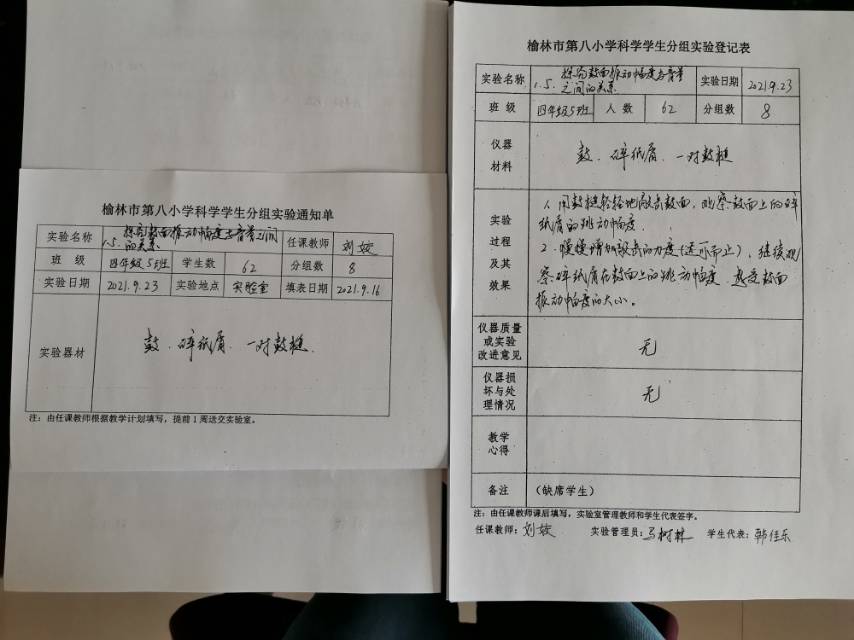 榆林市第八小学科学学生分组实验通知单
实验名称 1.5. 探究鼓面振动幅度与音量之间的关系 任课教师 刘姣
班 级 四年级5班 学生数 62 分组数 8
实验日期 2021.9.23 实验地点 实验室 填表日期 2021.9.16
实验器材 鼓、碎纸屑、一对鼓槌.
注：由任课教师根据教学计划填写，提前1周送交实验室。
榆林市第八小学科学学生分组实验登记表
实验名称 1.5. 探究鼓面振动幅度与音量之间的关系 实验日期 2021.9.23
班 级 四年级5班 人 数 62 分组数 8
仪器材料 鼓、碎纸屑、一对鼓槌
实验过程及其效果
1、用鼓槌轻轻地敲击鼓面，观察鼓面上的碎
纸屑的跳动幅度.
2、慢慢增加敲击的力度(适可而止)，继续观
察碎纸屑在鼓面上的跳动幅度，感受鼓面
振动幅度的大小。
仪器质量或实验改进意见 无
仪器损坏与处理情况 无
教学心得
备注 （缺席学生）
注：由任课教师课后填写，实验室管理教师和学生代表签字。
任课教师：刘姣 实验管理员：马树林 学生代表：韩佳乐